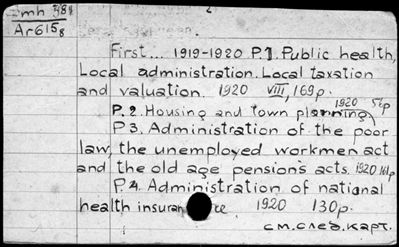 Emh 388
Ar615 8
First... 1919-1920 P.1. Public health,
Local administration. Local taxation
and valuation. 1920 VIII, 169p.
P.2. Housing and town planning 1920 56p
P3. Administration of the poor
law, the unemployed workmen act
and the old age pensions acts. 1920 161p
P.4. Administration of national
health insurance. 1920 130p.
см.след.карт.